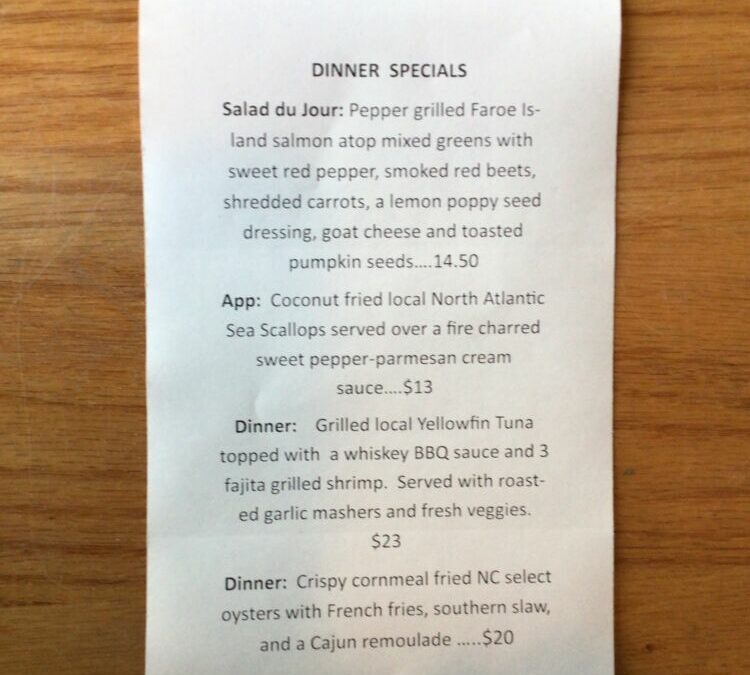 DINNER SPECIALS
Salad du Jour: Pepper grilled Faroe Is-
land salmon atop mixed greens with
sweet red pepper, smoked red beets,
shredded carrots, a lemon poppy seed
dressing, goat cheese and toasted
pumpkin seeds....14.50
App: Coconut fried local North Atlantic
Sea Scallops served over a fire charred
sweet pepper-parmesan cream
sauce....$13
Dinner: Grilled local Yellowfin Tuna
topped with a whiskey BBQ sauce and 3
fajita grilled shrimp. Served with roast-
ed garlic mashers and fresh veggies.
$23
Dinner: Crispy cornmeal fried NC select
oysters with French fries, southern slaw,
and a Cajun remoulade .....$20